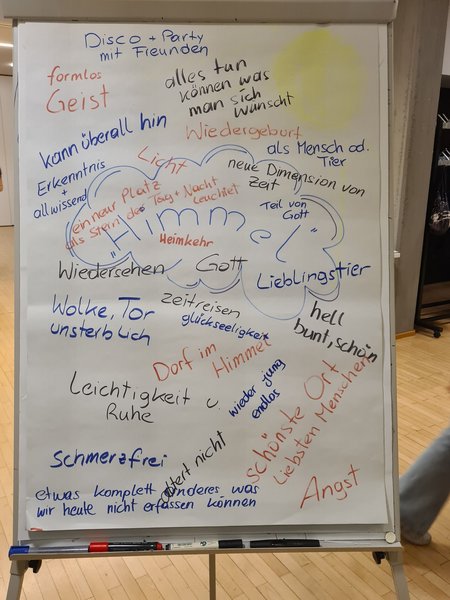 Disco + Party
mit Freunden
formlos
Geist
alles tun
können was
man sich
wünscht
Wiedergeburt
als Mensch od.
Tier
kann überall hin
Licht
neue Dimension von
Zeit
Erkenntnis
+
allwissend
ein neuer Platz
als Stern der Tag + Nacht
leuchtet
Teil von
Gott
"Himmel"
Heimkehr
Wiedersehen
Gott
Lieblingstier
Wolke, Tor
unsterblich
Zeitreisen
glückseeligkeit
hell
bunt, schön
Dorf im
Himmel
Leichtigkeit
Ruhe
wieder jung
endlos
schönste Ort
liebsten Menschen
Schmerzfrei
altert nicht
Angst
etwas komplett anderes was
wir heute nicht erfassen können